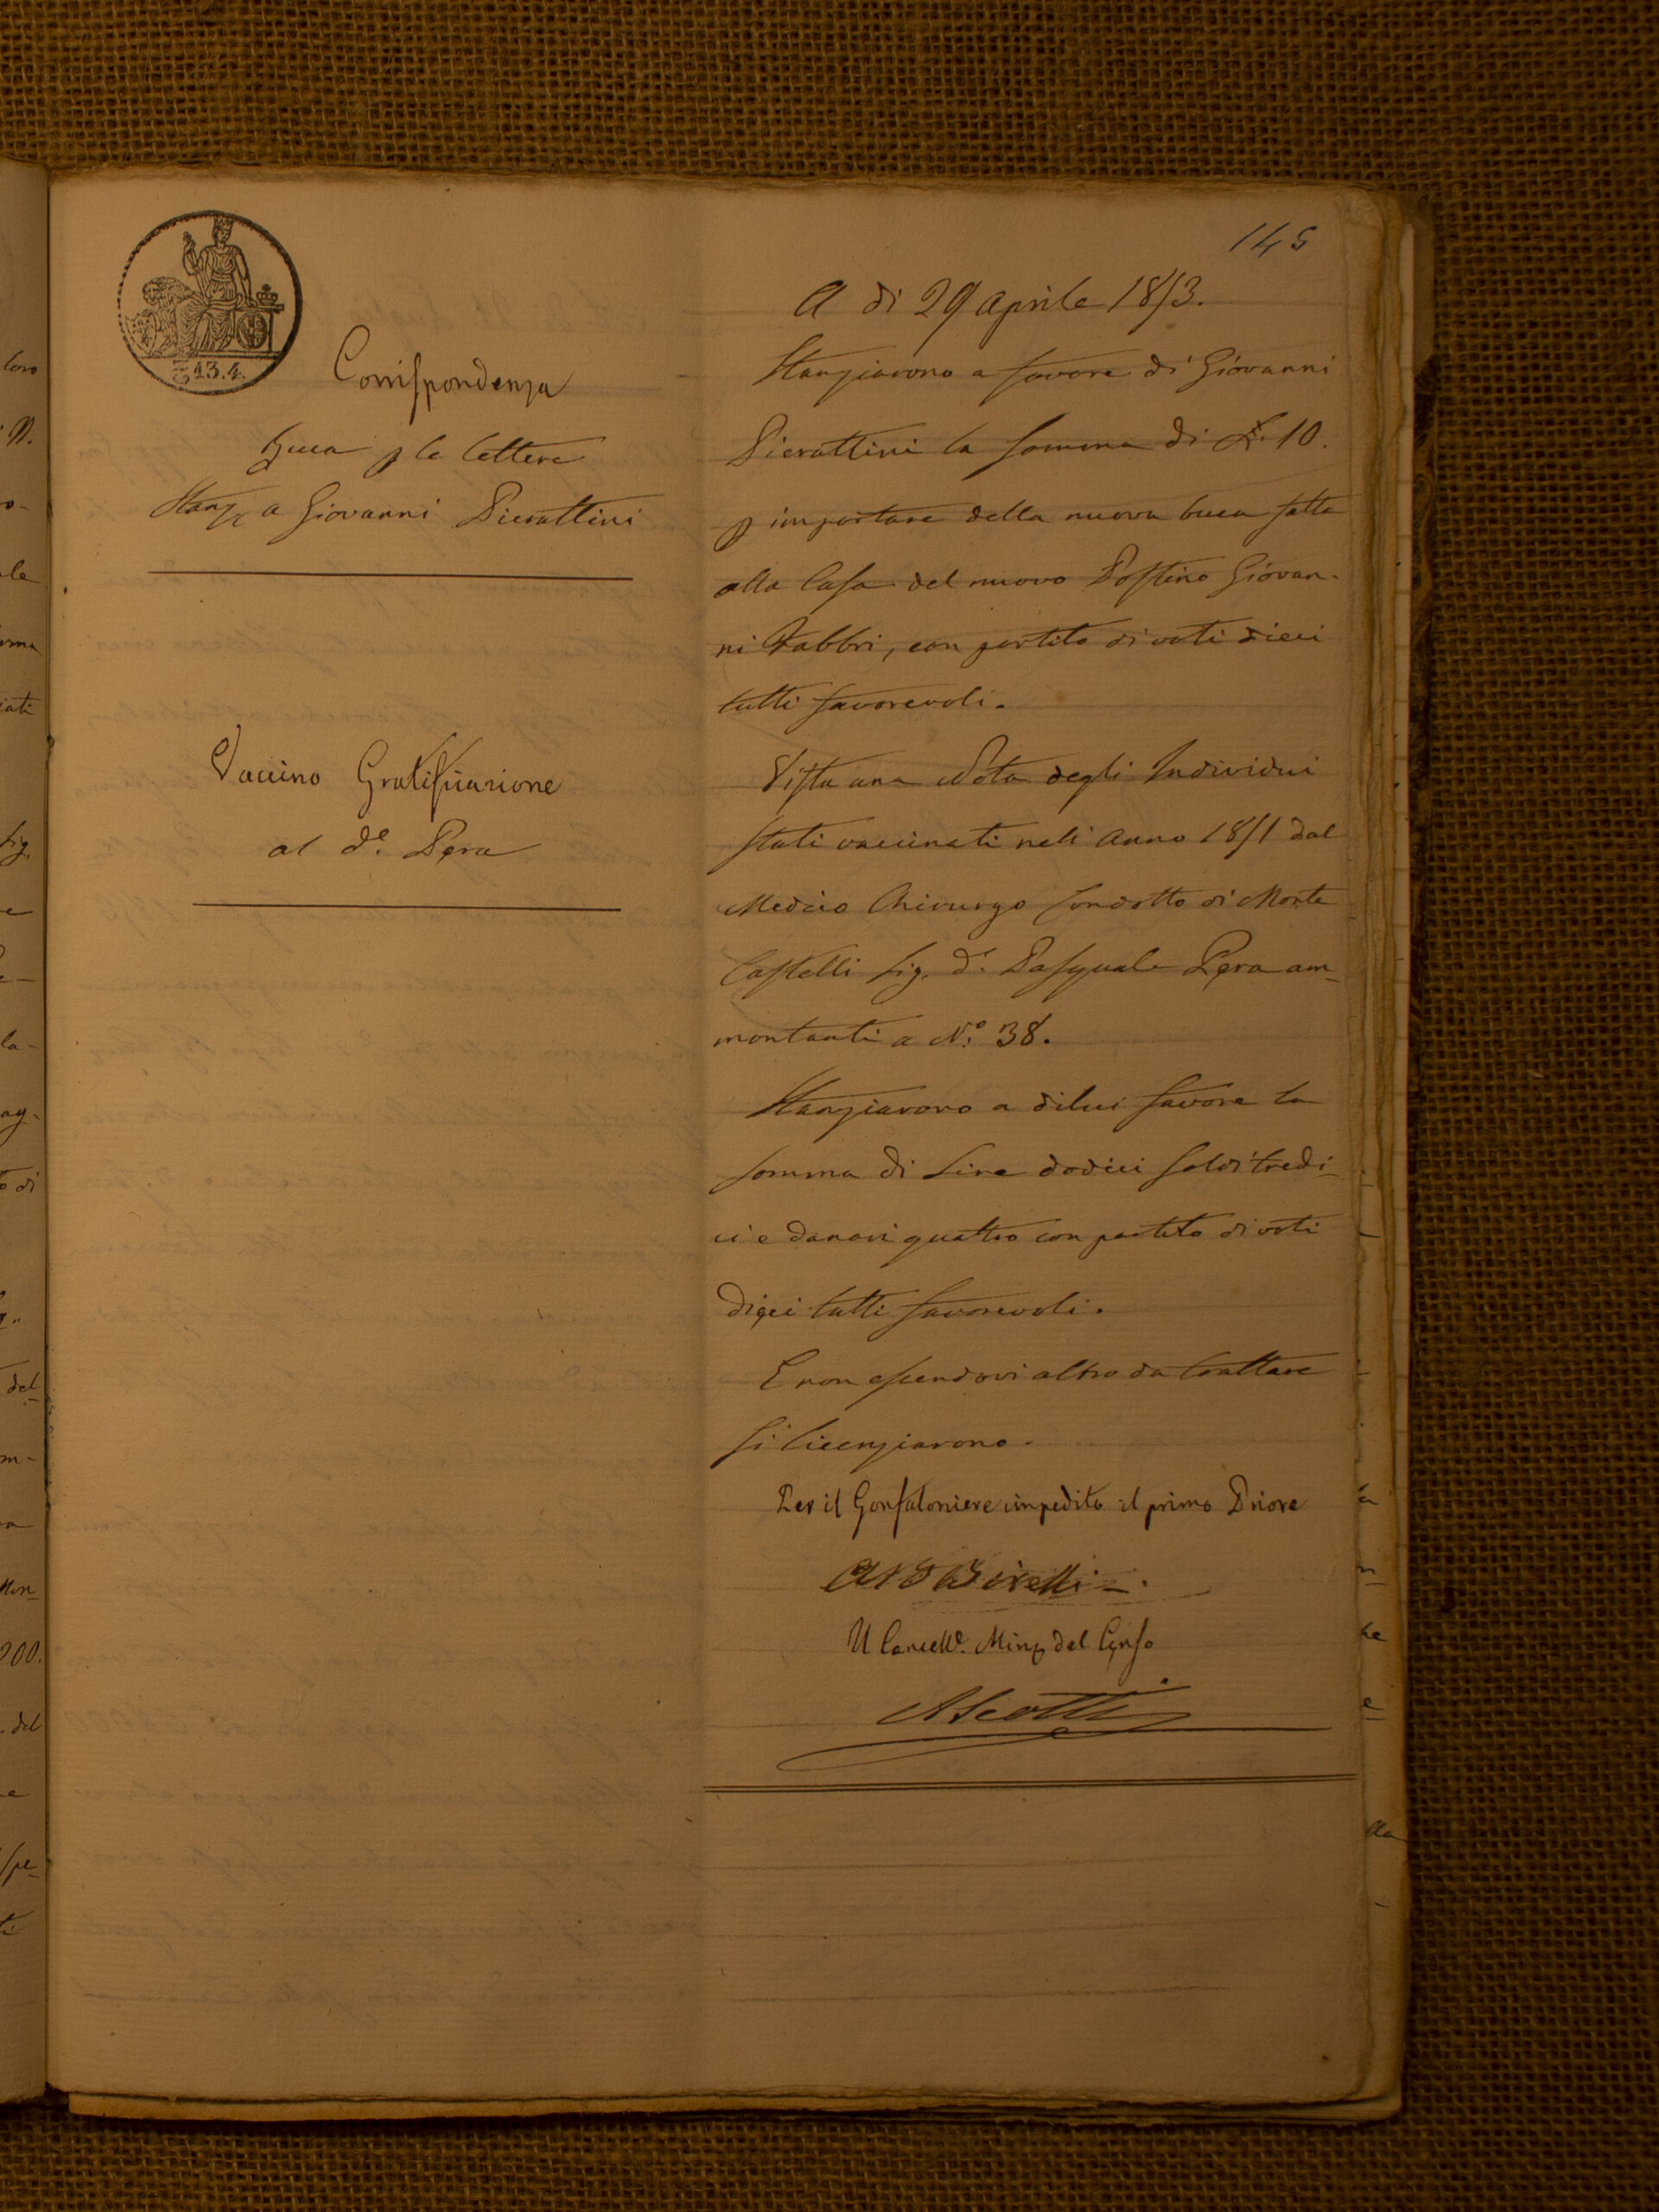 145
13.4.
A di 29 Aprile 1853.
Corrispondenza
Buca p le lettere
Stanz a Giovanni Pierattini
Stanziarono a favore di Giovanni
Pierattini la somma di £. 10.
p importare della nuova buca fatta
alla Casa del nuovo Postino Giovan-
ni Fabbri, con partito di voti dieci
tutti favorevoli.
Vaccino Gratificazione
al de. Pera
Vista una Nota degli Individui
stati vaccinati nell Anno 1851 dal
Medico Chirurgo Condotto di Monte
Castelli Sig. Dr. Pasquale Pera am-
montanti a No. 38.
Stanziarono a dilui favore la
somma di Lire dodici soldi tredi-
ci e danari quattro con partito di voti
dieci tutti favorevoli.
E non essendovi altro da trattare
si licenziarono.
Per il Gonfaloniere impedito il primo Priore
Il Cancelle. Mino del Censo
AScotti
loro
del
200.